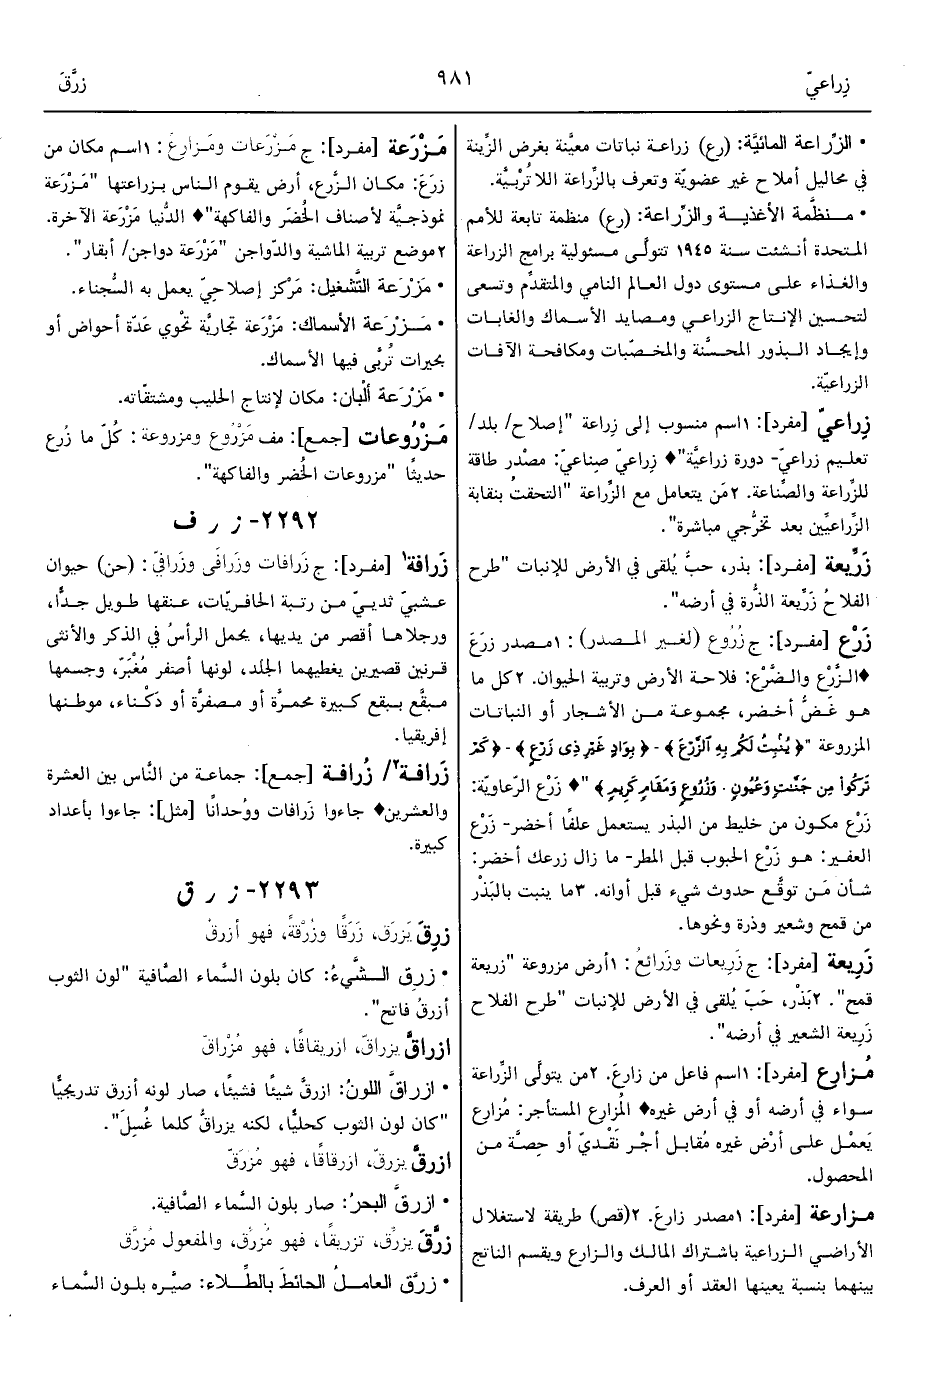 زِراعيّ
٩٨١
زرَّقَ
• الزِّراعة المائيَّة: (رع) زراعة نباتات معيَّنة بغرض الزِّينة
في محاليل أملاح غير عضويَّة وتعرف بالزِّراعة اللاتُرْبيَّة.
• منظَّمة الأغذية والزِّراعة: (رع) منظمة تابعة للأمم
المتحدة أنشئت سنة ١٩٤٥ تتولَّى مسئولية برامج الزراعة
والغذاء على مستوى دول العالم النامي والمتقدِّم وتسعى
لتحسين الإنتاج الزراعي ومصايد الأسماك والغابات
وإيجاد البذور المحسَّنة والمخصّبات ومكافحة الآفات
الزراعيّة.
زِراعيّ [مفرد]: ١اسم منسوب إلى زِراعة "إصلاح/ بلد/
تعليم زراعيّ- دورة زراعيَّة"♦ زِراعيّ صِناعيّ: مصْدر طاقة
للزِّراعة والصِّناعة. ٢مَن يتعامل مع الزِّراعة "التحقتُ بنقابة
الزِّراعيِّين بعد تخرُّجي مباشرة".
زَرِّيعة [مفرد]: بذر، حبٌّ يُلقى في الأرض للإنبات "طرح
الفلاحُ زَرِّيعة الذُّرة في أرضه".
زَرْع [مفرد]: ج زُرُوع (لغير المصدر): ١مصدر زرَعَ
♦الزَّرْع والضَّرْع: فلاحة الأرض وتربية الحيوان. ٢كل ما
هو غَضٌّ أخضر، مجموعة من الأشجار أو النباتات
المزروعة "﴿يُنْبِتُ لَكُمْ بِهِ الزَّرْعَ﴾-﴿بِوَادٍ غَيْرِ ذِي زَرْعٍ﴾-﴿كَمْ
تَرَكُوا مِن جَنَّتٍ وَعُيُونٍ . وَزُرُوعٍ وَمَقَامٍ كَرِيمٍ﴾"♦ زَرْع الرّعاويَّة:
زَرْع مكون من خليط من البذر يستعمل علفًا أخضر- زَرْع
العفير: هو زَرْع الحبوب قبل المطر- ما زال زرعك أخضر:
شأن مَن توقَّع حدوث شيء قبل أوانه. ٣ما ينبت بالبَذْر
من قمح وشعير وذرة ونحوها.
زَرِيعة [مفرد]: ج زَرِيعات وزَرائعُ: ١أرض مزروعة "زريعة
قمح". ٢بَذْر، حَبّ يُلقى في الأرض للإنبات "طرح الفلاح
زَرِيعة الشعير في أرضه".
مُزارِع [مفرد]: ١اسم فاعل من زارعَ. ٢من يتولَّى الزِّراعة
سواء في أرضه أو في أرض غيره♦ المُزارِع المستأجر: مُزارِع
يَعمْل على أرْض غيره مُقابل أجْر نَقْديّ أو حِصَّة من
المحصول.
مزارعة [مفرد]: ١مصدر زارعَ. ٢(قص) طريقة لاستغلال
الأراضي الزراعية باشتراك المالك والزارع ويقسم الناتج
بينهما بنسبة يعينها العقد أو العرف.
مَزْرَعة [مفرد]: ج مَزْرَعات ومَزارعُ: ١اسم مكان من
زرَعَ: مكان الزَّرع، أرض يقوم الناس بزراعتها "مَزْرَعة
نموذجيَّة لأصناف الخُضَر والفاكهة"♦ الدُّنيا مَزْرَعة الآخرة.
٢موضع تربية الماشية والدّواجن "مَزْرَعة دواجن/ أبقار".
• مَزْرَعة التَّشغيل: مَرْكز إصلاحيّ يعمل به السُّجناء.
• مَزْرَعة الأسماك: مَزْرَعة تجاريَّة تحْوي عَدّة أحواض أو
بحيرات تُربَّى فيها الأسماك.
• مَزْرَعة ألْبان: مكان لإنتاج الحليب ومشتقّاته.
مَزْرُوعات [جمع]: مف مَزْرُوع ومزروعة: كُلّ ما زُرع
حديثًا "مزروعات الخُضر والفاكهة".
٢٢٩٢- ز ر ف
زَرافة١ [مفرد]: ج زَرافات وزَرافَى وزَرافيّ: (حن) حيوان
عشبيّ ثدييّ من رتبة الحافريّات، عنقها طويل جدًّا،
ورجلاها أقصر من يديها، يحمل الرأسُ في الذكر والأنثى
قرنين قصيرين يغطيهما الجلد، لونها أصفر مُغْبَرّ، وجسمها
مبقَّع ببقع كبيرة محمرَّة أو مصفرَّة أو دَكْناء، موطنها
إفريقيا.
زَرافة٢/ زُرافة [جمع]: جماعة من النَّاس بين العشرة
والعشرين♦ جاءوا زَرافات ووُحْدانًا [مثل]: جاءوا بأعداد
كبيرة.
٢٢٩٣- ز ر ق
زرِقَ يَزرَق، زَرَقًا وزُرْقةً، فهو أزرقُ
• زرِق الشَّيءُ: كان بلون السَّماء الصَّافية "لون الثوب
أزرقُ فاتح".
ازراقَّ يزراقّ، ازريقاقًا، فهو مُزْراقّ
• ازراقَّ اللونُ: ازرقَّ شيئًا فشيئًا، صار لونه أزرق تدريجيًّا
"كان لون الثوب كحليًّا، لكنه يزراقُّ كلما غُسِلَ".
ازرقَّ يزرقّ، ازرقاقًا، فهو مُزرَقّ
• ازرقَّ البحرُ: صار بلون السَّماء الصَّافية.
زرَّقَ يزرِّق، تزريقًا، فهو مُزرِّق، والمفعول مُزرَّق
• زرَّق العاملُ الحائطَ بالطِّلاء: صيَّره بلون السَّماء